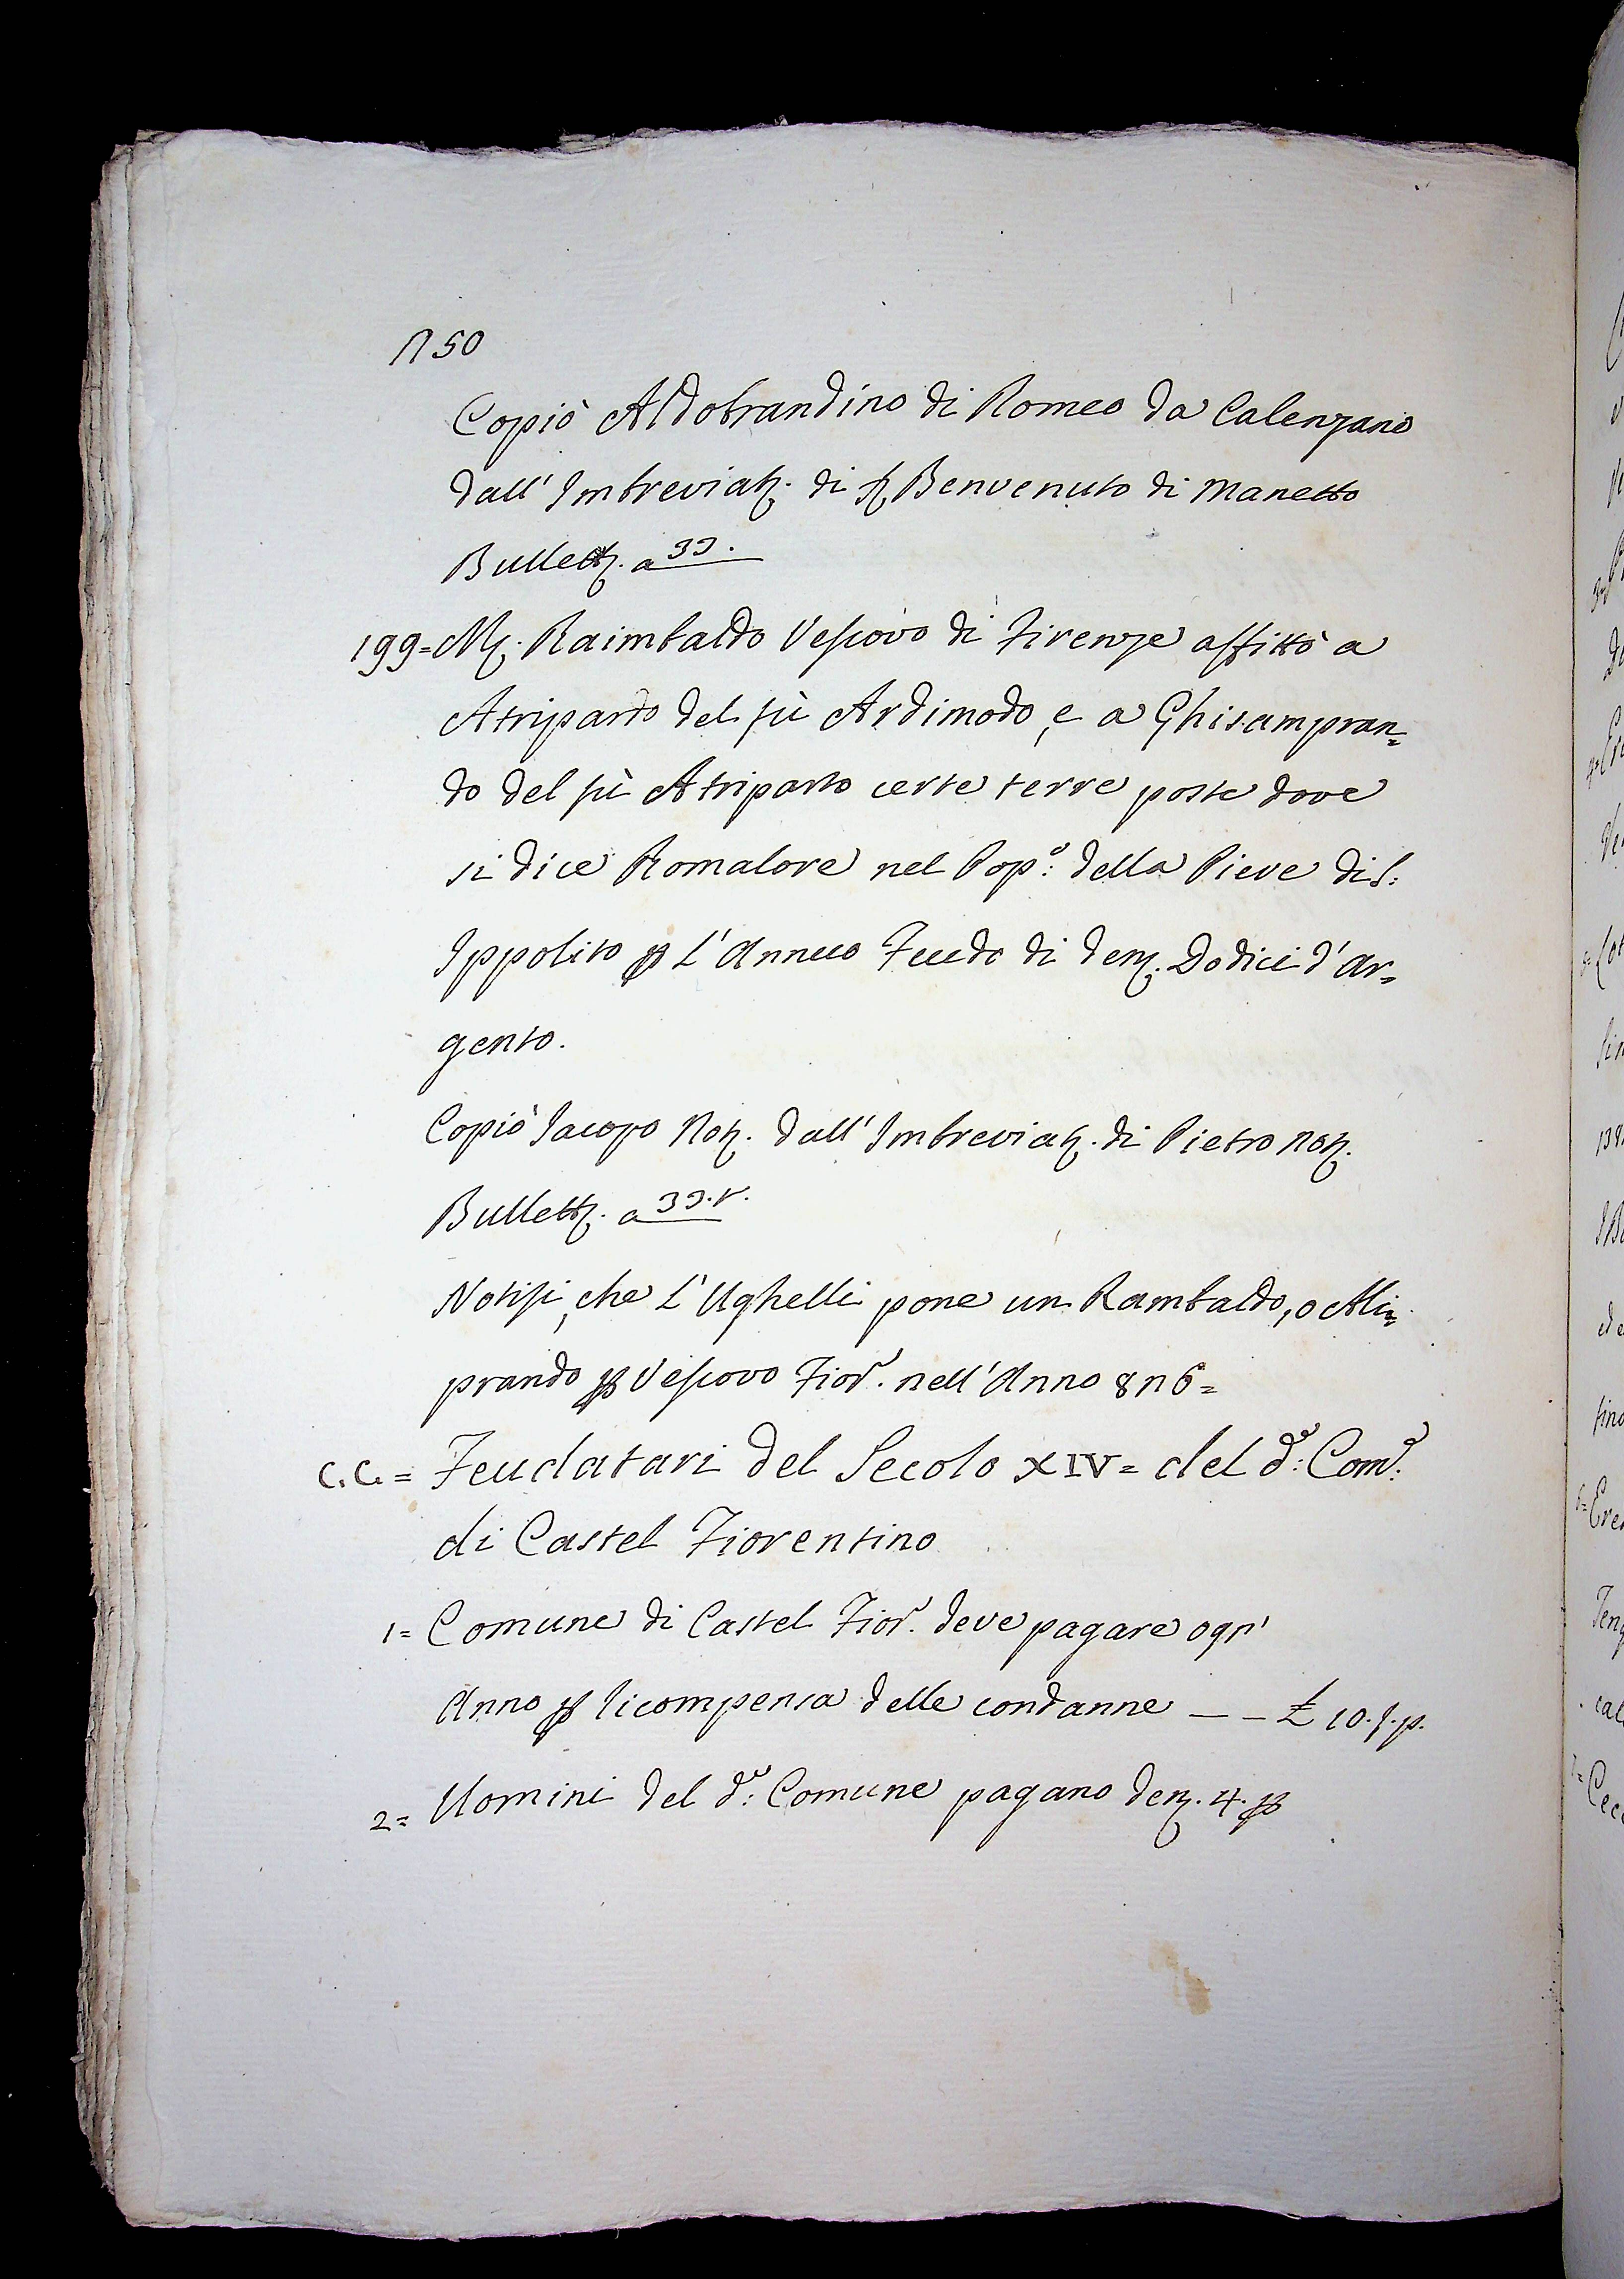 1750
Copiò Aldobrandino di Romeo da Calenzano
dall'Imbreviatz. di sz Benvenuto di Manetto
Bulletz. a 33.
199= Mz. Raimbaldo Vescovo di Firenze affittò a
Atriparto del fù Ardimodo, e a Ghisampran=
do del fù Atriparto certe terre poste dove
si dice Romalore nel Pop.º della Pieve di S:
Ippolito p L'Annuo Feudo di denz. Dodici d'Ar=
gento.
Copiò Jacopo Notz. dall'Imbreviatz. di Pietro Notz.
Bulletz. a 33.v.
Notisi, che L'Ughelli pone un Rambaldo, o Ali=
prando p Vescovo Fior. nell'Anno 876=
C.C.= Feudatari del Secolo XIV= del d.º Com.e
di Castel Fiorentino
1= Comune di Castel Fior. deve pagare ogn'
Anno p ricompensa delle condanne — — £ 10.f.p.
2= Uomini del d.º Comune pagano denz. 4. p